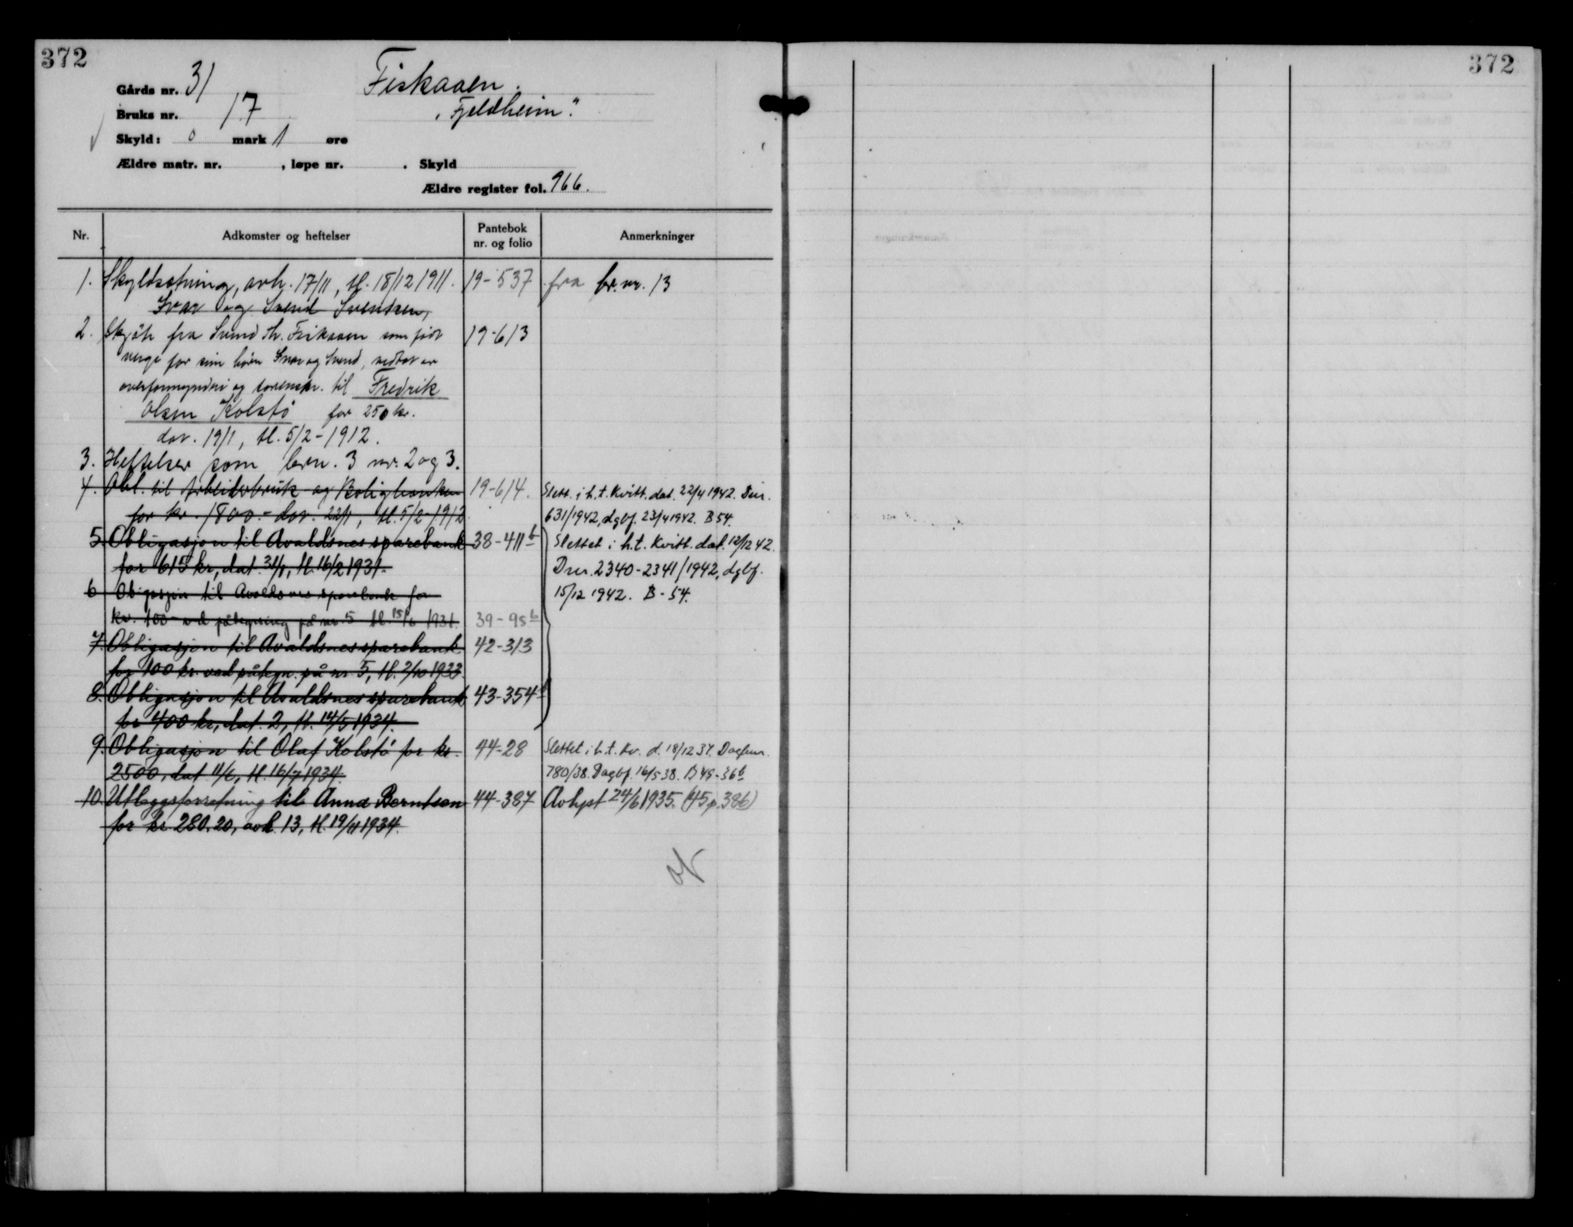 372
372
Gårds nr. 31 Fiskaaen.
Bruks nr. 17 „Fjeldheim".
Skyld: 0 mark 1 øre
Ældre matr. nr. , løpe nr. . Skyld
Ældre register fol. 966.
Nr. Adkomster og heftelser Pantebok nr. og folio Anmerkninger
1. Skyldsætning, avh. 17/11, tl. 18/12 1911. 19-537 fra br.nr. 13
Ivar og Svend Svendsen,
2. Skjøte fra Svend Th. Fiskaaen som født 19-613
verge for sine børn Ivar og Svend, vedtat av
overformynderi og sorenskr. til Fredrik
Olsen Kolstø for 250 kr.
dat. 19/1, tl. 5/2-1912.
3. Heftelser som brn. 3 nr. 2 og 3.
4. Obl. til Arbeiderbruk og Boligbanken 19-614. Slett. i h.t. kvitt. dat. 22/4 1942. Dnr.
for kr. 1800.- dat. 22/1, tl. 5/2-1912 631/1942, dgbf. 23/4 1942. B 54.
5. Obligasjon til Avaldsnes sparebank 38-411b Slettet i h.t. kvitt. dat. 12/12 42.
for 615 kr, dat. 31/1, tl. 16/2 1931. Dnr. 2340-2341/1942, dgbf.
6 Obligasjon til Avaldsnes sparebank for 15/12 1942. B-54.
kr. 100 - ved påtegning på nr 5 tl. 15/6 1931. 39-95b
7. Obligasjon til Avaldsnes sparebank 42-313
for 100 kr. ved påtegn. på nr 5, tl. 2/10 1933
8. Obligasjon til Avaldsnes sparebank 43-354b
for 400 kr, dat. 2, tl. 14/5 1934.
9. Obligasjon til Olaf Kolstø for kr. 44-28 Slettet i h.t. kv. d. 18/12 37. Dagbnr.
2500, dat 11/6, tl. 16/7 1934. 780/38. Dagbf. 16/5 38. B 49-36b
10. Utleggsforretning til Anna Berntsen 44-387 Avlyst 24/6 1935. (45 p. 386)
for kr 280.20, avh. 13, tl. 19/11 1934.